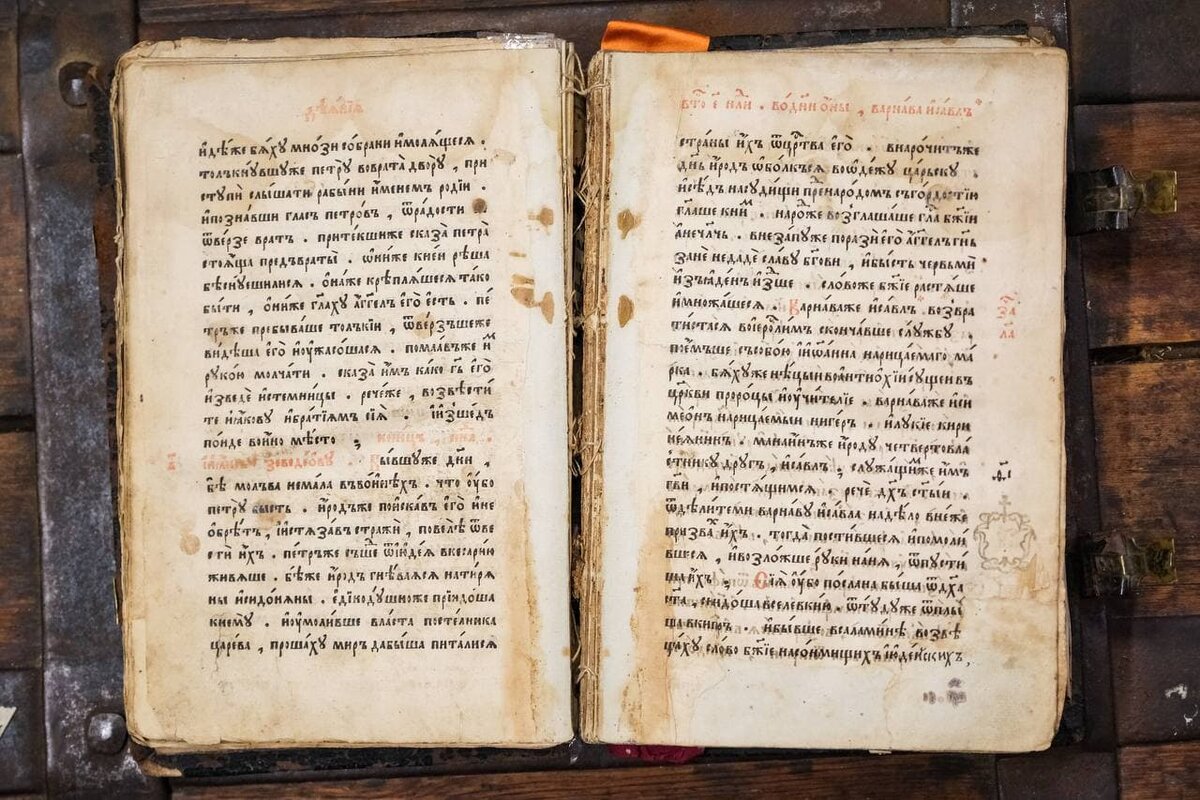 дѣѧнїѧ
идѣже бѧ́хꙋ мно́зи со́брани имолѧ́щесѧ .
толкнꙋ́вшꙋже петрꙋ̀ вовратà дворꙋ̀ , при
стꙋпѝ слы́шати рабы́ни и́менемъ ро́дїи .
ипозна́вши гла́съ петро́въ , ѿра́дости
ѿве́рзе вра́тъ . прите́кшиже сказа̀ петра̀
стоѧ́ща предъвраты̀ . ѡни́же кне́и рѣ́ша
бѣснꙋ́ешилисѧ . ѡна́же крѣплѧ́шесѧ та́ко
бы́ти , ѻни́же гл҃ахꙋ а҆́гг҃елъ е҆гѡ̀ е҆́сть . пе
тръ́же пребыва́ше толкі́й , ѿве́рзъшеже
ви́дѣша е҆гѡ̀ иоу҆жасо́шасѧ . помаа́въже и҆мъ
рꙋко́ю молча́ти . сказа̀ и҆́мъ ка́ко гь҃ е҆гѡ̀
и҆зведѐ и҆стемни́цы . рече́же , возвѣсти́
те и҆а́ковꙋ и҆бра́тїѧмъ сїѧ̀ и҆изше́дъ
по́йде во́йно мѣ́сто ;
бы́вшꙋже дн҃и ,
бѣ̀ молва̀ нема́ла въво́инѣхъ . что̀ оу҆́бо
петрꙋ̀ бы́сть . и҆́родъже поиска́въ е҆гѡ̀ и҆не
ѡбрѣ́тъ , и҆истѧза́въ стра́жи , повелѣ̀ ѿве
стѝ и҆́хъ .
живѧ́ше . бѣ́же и҆́родъ гнѣ́ваѧсѧ нати́рѧ
ны и҆сидо́нѧны . е҆динодꙋ́шноже прїидо́ша
кнемꙋ̀ . и҆оу҆моли́вше вла́ста посте́лника
царе́ва , проша́хꙋ ми́ръ дабы́ша пита́лисѧ
вто́ е҆ не҃ли . во́дни ѻ҆́ны , варна́ва и҆са́влъ
страны̀ и҆́хъ ѿца́рства е҆гѡ̀ . внарочи́тъже
дн҃ь и҆́родъ ѡбо́лксѧ вооде́ждꙋ ца́рьскꙋ .
и҆сѣ́дъ насꙋди́щи
гл҃аше кни́мъ . наро́же возглаша́ше гла́ бж҃їи
а҆неч҃лчь . внеза́пꙋже поразѝ е҆гѡ̀ а҆́гг҃елъ гн҃ь
занѐ неда́де сла́вꙋ бг҃ови , и҆бы́сть червьмѝ
и҆з̾ѧде́нъ и҆́зше . сло́воже бж҃їе растѧ́ше
и҆мно́жашесѧ . Варна́важе и҆са́влъ возвра
ти́стасѧ воіерⷭ҇ли́мъ сконча́вше слꙋ́жбꙋ .
пое́мъше съсобо́ю і҆ѡ҆а́нна нарица́емаго ма
рка . бѧ́хꙋже нѣ́цыи воантиохі́и сꙋщеи въ
цр҃кви проро́цы и҆оу҆чи́твлїе . варна́важе и҆си
мео́нъ нарица́емыи ни́геръ . и҆лꙋкі́е кири
не́ѧнинъ . манаи́лъже и҆́родꙋ четвертовла
стникꙋ дрꙋ́гъ , и҆са́влъ , слꙋжа́щиⷨже и҆́мъ
гв҃и , и҆постѧ́щимсѧ . речѐ дх҃ъ ст҃ы́и .
ѿдѣли́теми варна́вꙋ и҆са́вла надѣ́ло вне́же
призва́хъ и҆́хъ . тогда̀ пости́вшесѧ и҆помоли
вшесѧ , и҆возло́жше рꙋ́ки на́нѧ , ѿпꙋсти́
ша и҆́хъ . Сїѧ̀ оу҆́бо по́слана бы́вша ѿдх҃а
ст҃а , снидо́ша вселевкі́ю . ѿтꙋ́дꙋже ѿплы́
ша вки́пръ . и҆бы́вше всалами́нѣ возвѣ
ща́хꙋ сло́во бж҃їе насо́нмищихъ і҆ꙋде́йскихъ ,
за
ла